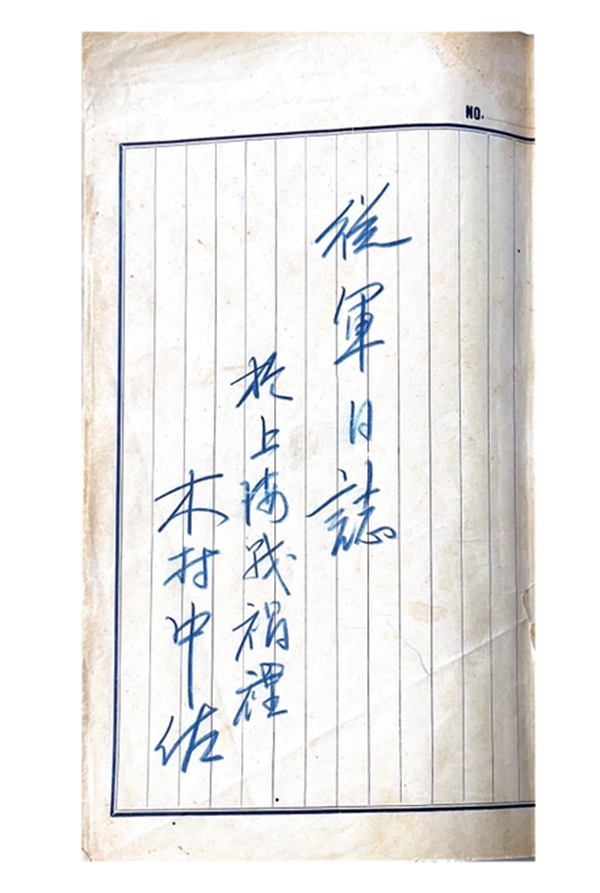 NO.
從軍日誌
於上海战禍裡
木村中佐